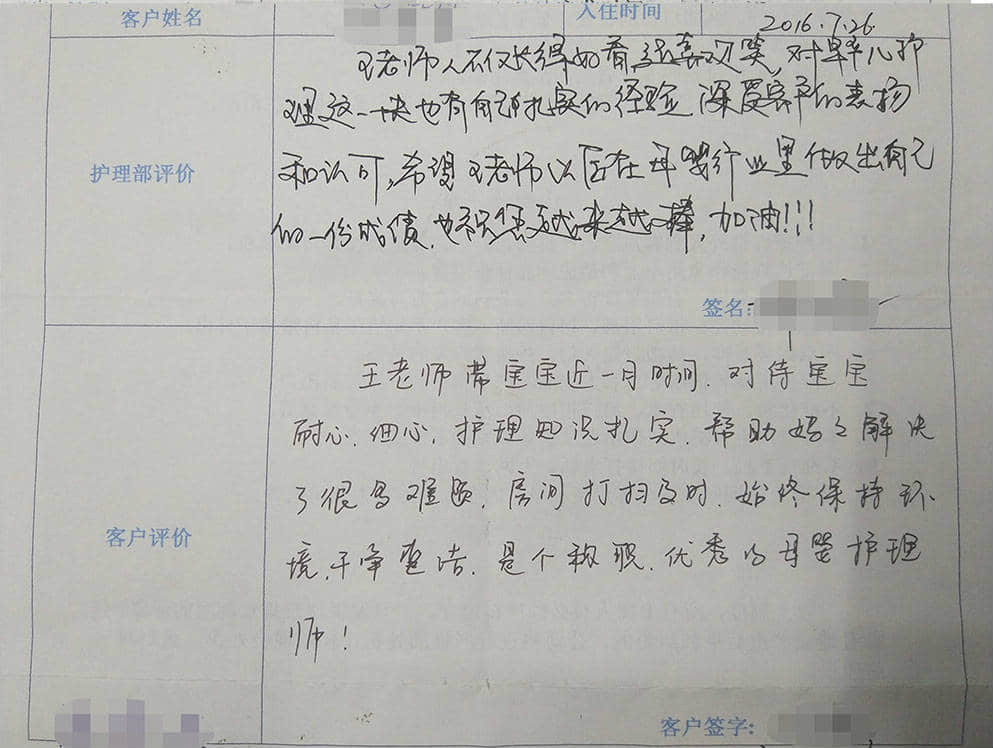 客户姓名
入住时间
2016.7.26
护理部评价
王老师人不仅长得好看,还喜欢笑,对早产儿护
理这一块也有自己扎实的经验,深受客户的表扬
和认可,希望王老师以后在母婴行业里做出自己
的一份成绩,也祝您越来越棒,加油!!!
签名:
客户评价
王老师带宝宝近一月时间.对待宝宝
耐心.细心.护理知识扎实.帮助妈妈解决
了很多难题.房间打扫及时.始终保持环
境干净整洁.是个称职.优秀的母婴护理
师!
客户签字: